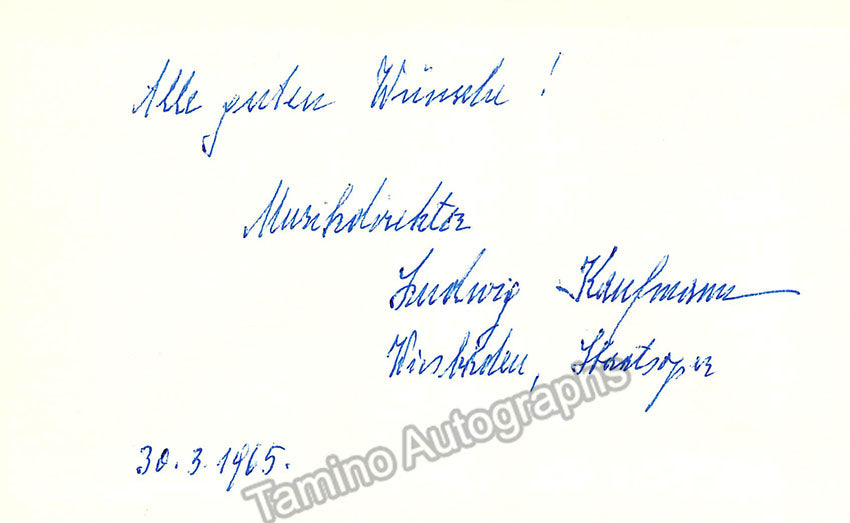 Alle guten Wünsche !
Musikdirektor
Ludwig Kaufmann
Wiesbaden, Staatsoper
30.3.1965.
Tamino Autographs